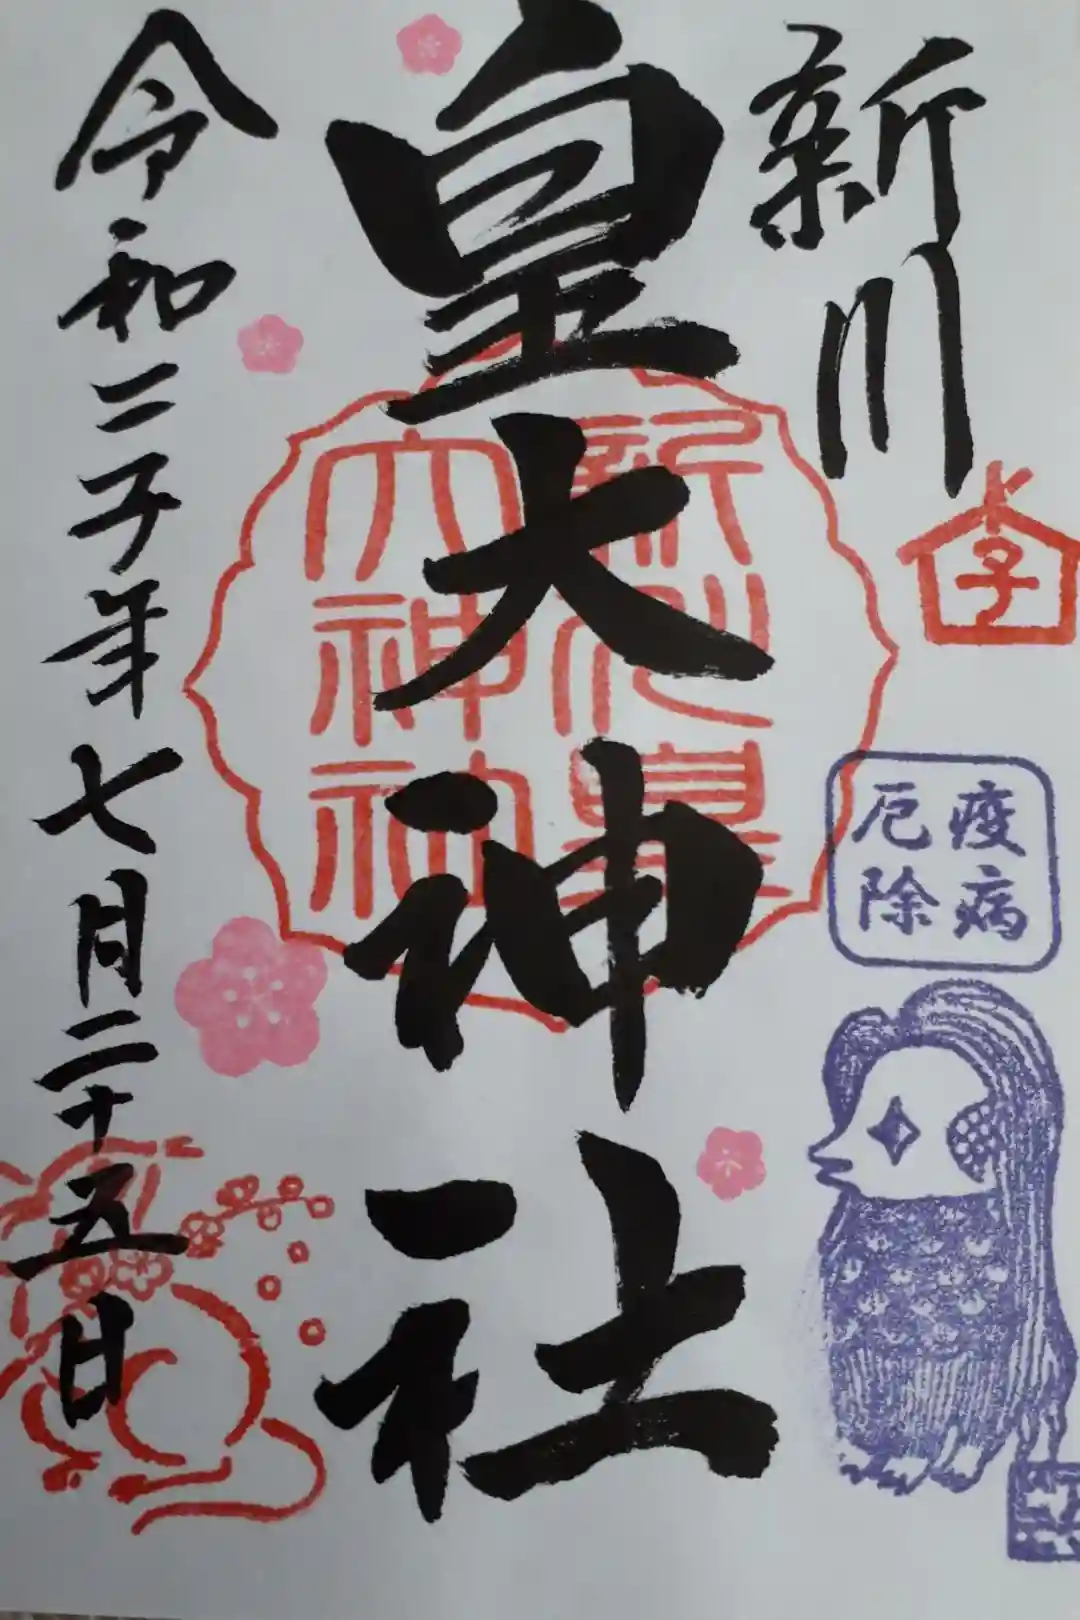 新川
子
疫病
厄除
皇大神社
新川皇
大神神
令和二子年七月二十五日